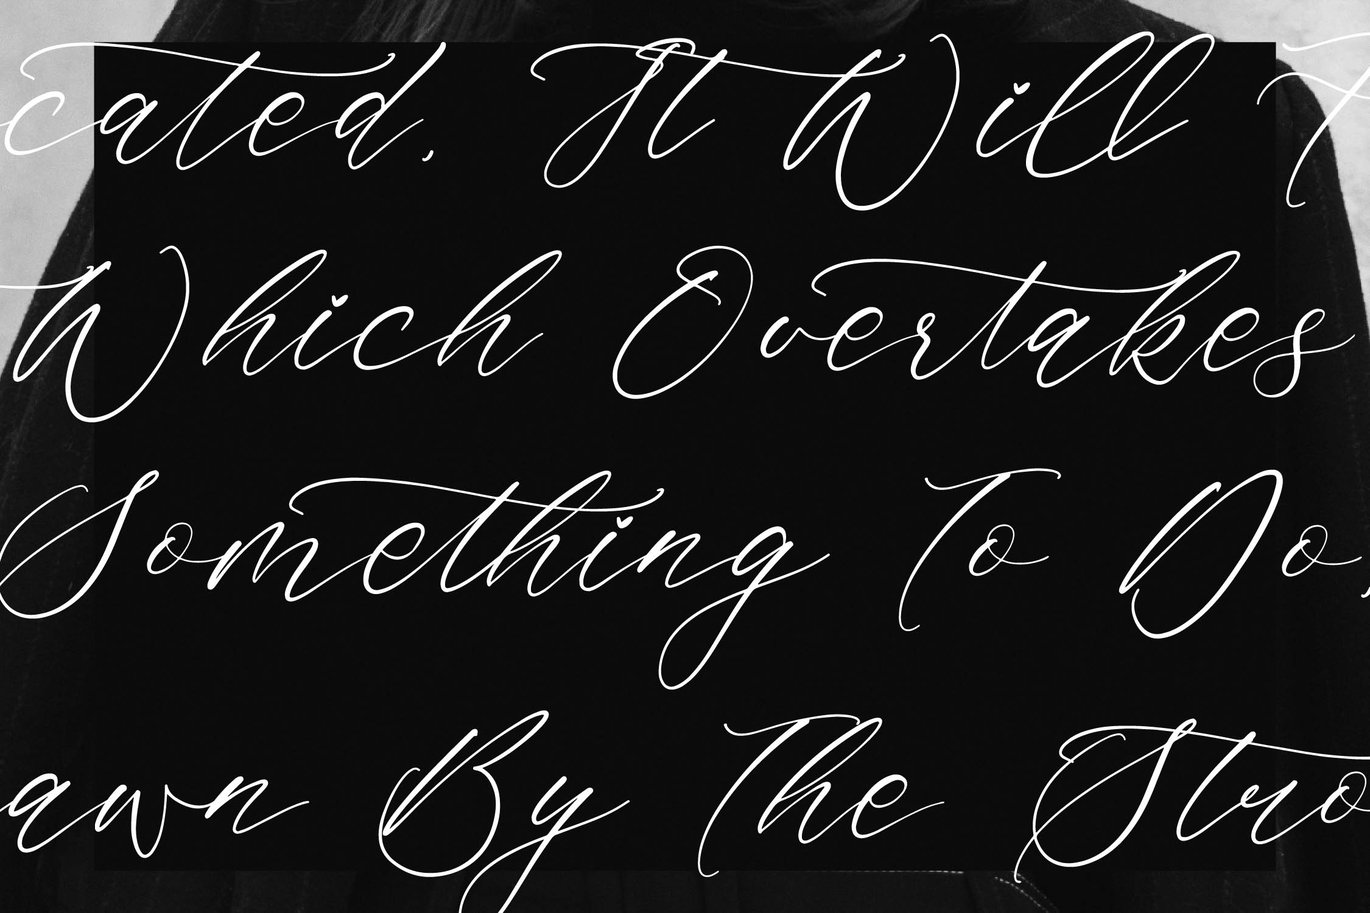 cated. It Will T
Which Overtakes
Something To Do,
awn By The Stro